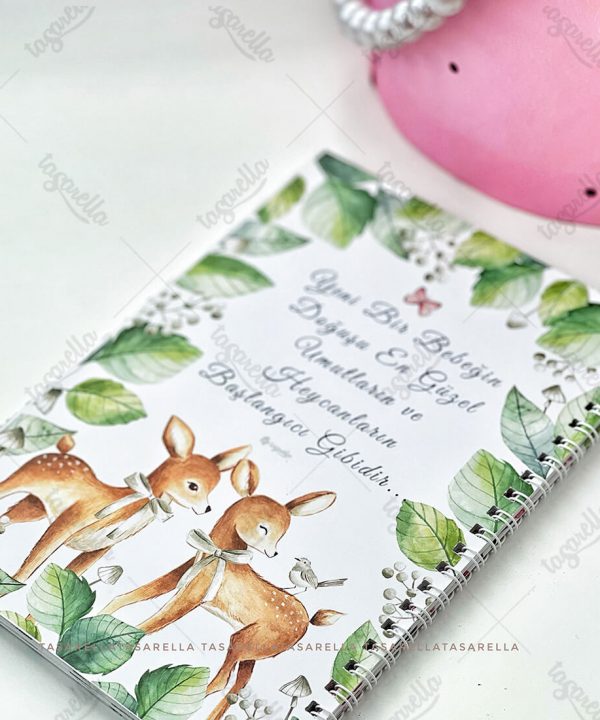 Yeni Bir Bebeğin
Doğuşu En Güzel
Umutların ve
Heycanların
Başlangıcı Gibidir...
TASARELLATASARELLA TASARELLATASARELLATASARELLA
tasarella
tasarella
tasarella
tasarella
tasarella
tasarella
tasarella
tasarella
tasarella